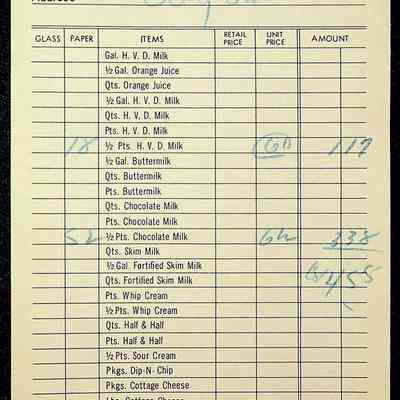 GLASS PAPER ITEMS RETAIL PRICE UNIT PRICE AMOUNT
Gal. H. V. D. Milk
½ Gal. Orange Juice
Qts. Orange Juice
½ Gal. H. V. D. Milk
Qts. H. V. D. Milk
Pts. H. V. D. Milk
18 ½ Pts. H. V. D. Milk 6½ 117
½ Gal. Buttermilk
Qts. Buttermilk
Pts. Buttermilk
Qts. Chocolate Milk
Pts. Chocolate Milk
52 ½ Pts. Chocolate Milk 6½ 338
Qts. Skim Milk
½ Gal. Fortified Skim Milk
Qts. Fortified Skim Milk 455
Pts. Whip Cream
½ Pts. Whip Cream
Qts. Half & Half
Pts. Half & Half
½ Pts. Sour Cream
Pkgs. Dip-N-Chip
Pkgs. Cottage Cheese